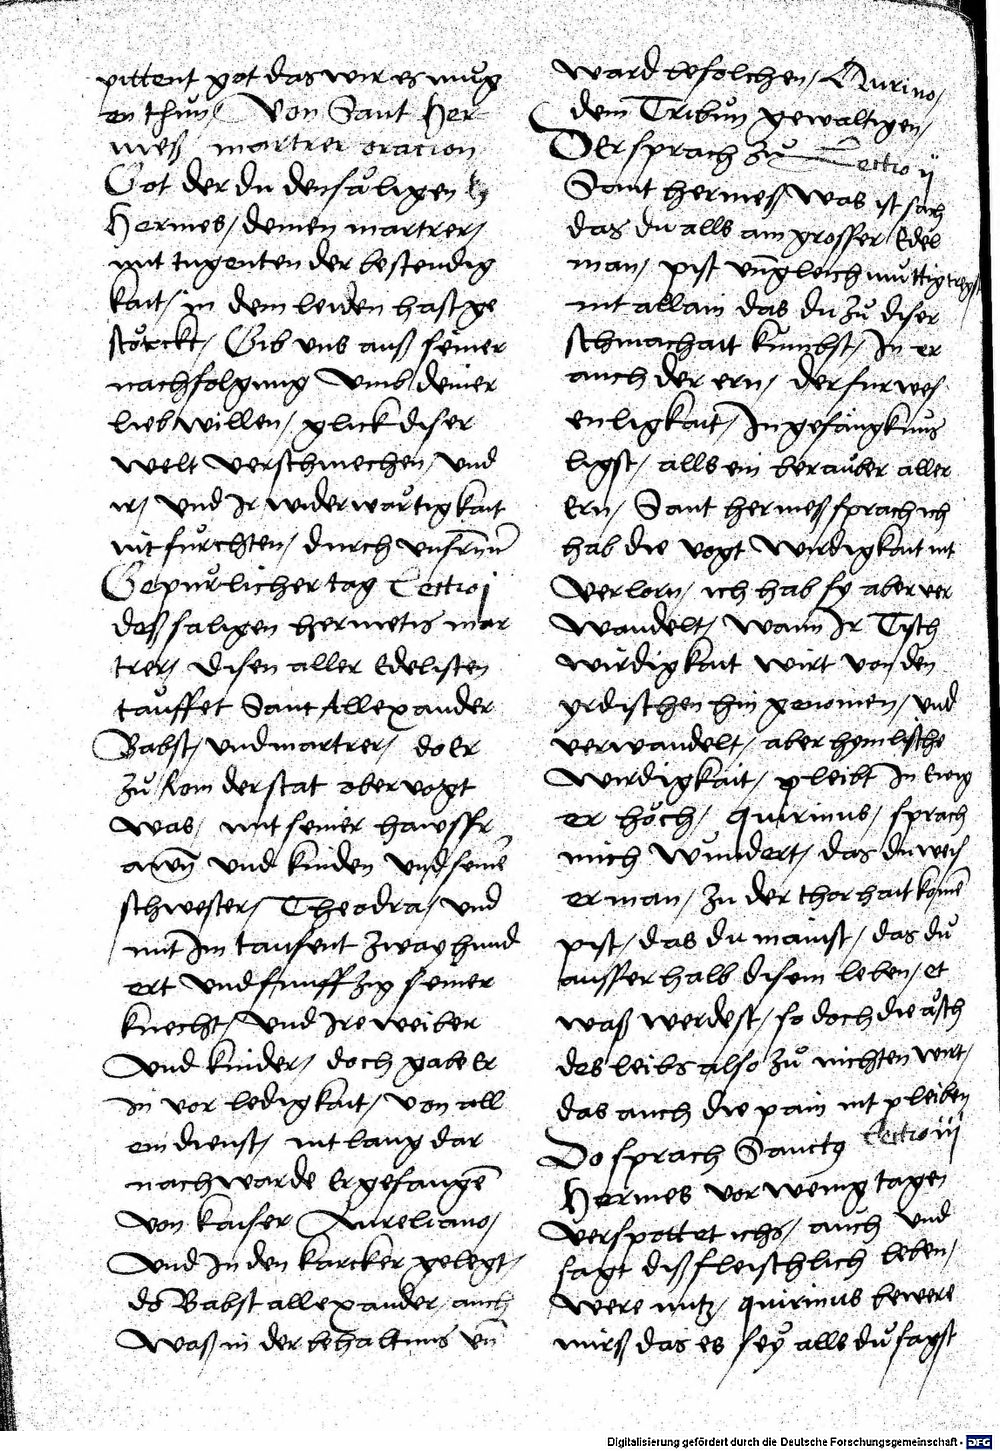 pittent got das wir es mug
en thun / Von Sant Her
meß martrer oracion
Got der du den säligen
Hermes / deinen martrer /
mit tugenten der bestendig
kait / in dem leiden hast ge
störckt / Gib vns auß seiner
nachfolgung Vmb deiner
lieb willen / glick diser
welt verschmechen / Vnd
ir / Vnd Ir widerwärtigkait
nit fürchten / durch vnsrñ
Gepürlicher tag Lectio j
deß saligen hermetis mar
trer / disen aller Edelisten
tauffet Sant Allexander
Babst / vnd martrer / do Er
zů Rom der stat obervogt
was / mit seiner hawsfr
awñ Vnd kinden Vnd seinē
schwester / Theodra / Vnd
mit Im tausent zway hund
ert Vnd funffzig seiner
knecht / Vnd Ire weiber
Vnd kinder / doch gabe Er
in vor ledigkait / von all
em dienst / nit lang dar
nach warde Er gefangē
von kaiser Aureliano /
Vnd In den karcker gelegt /
do Babst allexander / auch
Waß in der behaltnus vñ
Ward befolchen / Quirino /
dem Tribun gewaltigen /
Der sprach zů Lectio ij
Sant hermes / was ist sach
das du alls ain grosser Edel
man / pist vngleichmüttig tregst
nit allain das du zů diser
schmachait kumbst / In er
auch der ern / der fur wes
enligkait / In gefängknus
ligst / alls ein berauber aller
Ern / Sant hermes sprach ich
hab die vogt Wirdigkait nit
verlorn / ich hab sy aber ver
wandelt / Wann Ir Tisch
wirdigkait wirt von den
yrdischen hin genomen / vnd
verwandelt / aber hymlische
wirdigkait / pleibt In Ewig
er höch / quirinus / sprach
mich wundert / das du weis
er man / zu der thorhait komē
pist / das du mainst / das dů
ausserhalb disem leben / et
waß werdest / so doch die äsch
des leibs also zů nichten wirt /
das auch die pain nit pleiben
Do sprach Sanctꝰ Lectio iij
Hermes vor wenig tagen
verspottet ichs / auch Vnd
sagt diß fleischlich leben /
Were nutz / quirinus bewere
mirß das es sey alls du sagst
Digitalisierung gefördert durch die Deutsche Forschungsgemeinschaft - DFG